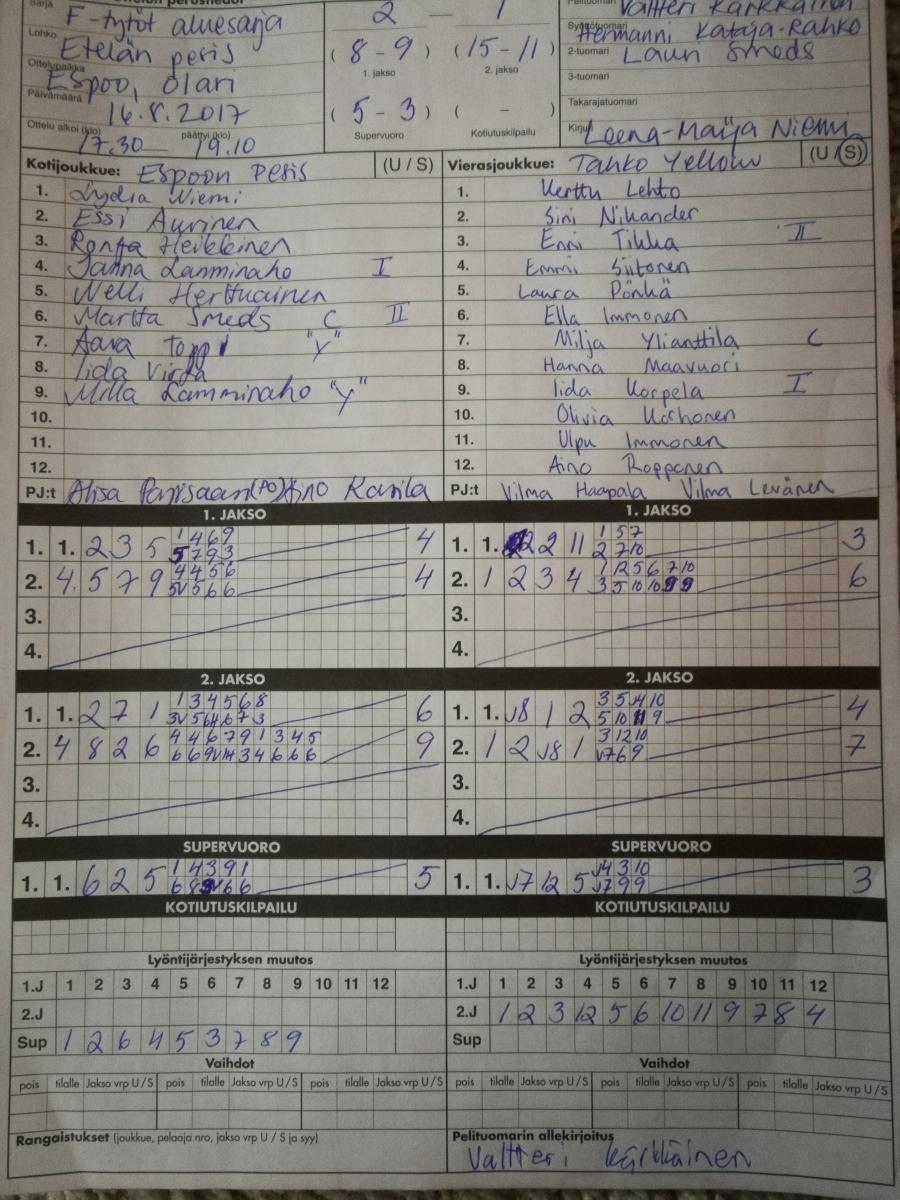 Sarja
F-tytöt aluesarja
Lohko
Etelän pesis
Ottelupaikka
Espoo, Olari
Päivämäärä
16.8.2017
Ottelu alkoi (klo) päättyi (klo)
17.30 19.10
2 - 1
( 8 - 9 ) ( 15 - 11 )
1. jakso 2. jakso
( 5 - 3 ) ( - )
Supervuoro Kotiutuskilpailu
Pelituomari
Valtteri Kärkkäinen
Syöttötuomari
Hermanni Kataja-Rahko
2-tuomari
Lauri Smeds
3-tuomari
Takarajatuomari
Kirjuri
Leena-Maija Niemi
Kotijoukkue: Espoon Pesis (U / S)
1. Lydia Niemi
2. Essi Aurinen
3. Ronja Heikkinen
4. Janna Lamminaho I
5. Nelli Herttuainen
6. Martta Smeds C II
7. Aava Toppi "Y"
8. Iida Virta
9. Milla Lamminaho "Y"
10.
11.
12.
PJ:t Alisa (PO) Aino Karila
Vierasjoukkue: Tahko Yellow (U / S)
1. Verttu Lehto
2. Sini Nikander
3. Enni Tikka II
4. Emmi Siitonen
5. Laura Pönkä
6. Ella Immonen
7. Milja Ylianttila C
8. Hanna Maavuori
9. Iida Korpela I
10. Olivia Korhonen
11. Ulpu Immonen
12. Aino Ropponen
PJ:t Vilma Haapala Vilma Levänen
1. JAKSO
1. 1. 2 3 5 1 4 6 9 4
5 7 9 3
2. 4. 5 7 9 4 4 5 6 4
5V 5 6 6
3.
4.
1. JAKSO
1. 1. 2 2 11 1 5 7 3
2 7 10
2. 1 2 3 4 1 12 5 6 7 10 6
3 5 10 10 9 9
3.
4.
2. JAKSO
1. 1. 2 7 1 1 3 4 5 6 8 6
2. 4 8 2 6 4 4 6 7 9 1 3 4 5 9
3.
4.
2. JAKSO
1. 1. √8 1 2 3 5 √4 10 4
5 10 11 9
2. 1 2 √8 1 3 12 10 7
√7 6 9
3.
4.
SUPERVUORO
1. 1. 6 2 5 1 4 3 9 1 5
SUPERVUORO
1. 1. √7 12 5 √4 3 10 3
√7 9 9
KOTIUTUSKILPAILU
KOTIUTUSKILPAILU
Lyöntijärjestyksen muutos
1.J 1 2 3 4 5 6 7 8 9 10 11 12
2.J
Sup 1 2 6 4 5 3 7 8 9
Lyöntijärjestyksen muutos
1.J 1 2 3 4 5 6 7 8 9 10 11 12
2.J 1 2 3 12 5 6 10 11 9 7 8 4
Sup
Vaihdot
pois tilalle Jakso vrp U / S pois tilalle Jakso vrp U / S pois tilalle Jakso vrp U / S
Vaihdot
pois tilalle Jakso vrp U / S pois tilalle Jakso vrp U / S pois tilalle Jakso vrp U / S
Rangaistukset (joukkue, pelaaja nro, jakso vrp U / S ja syy)
Pelituomarin allekirjoitus
Valtteri Kärkkäinen